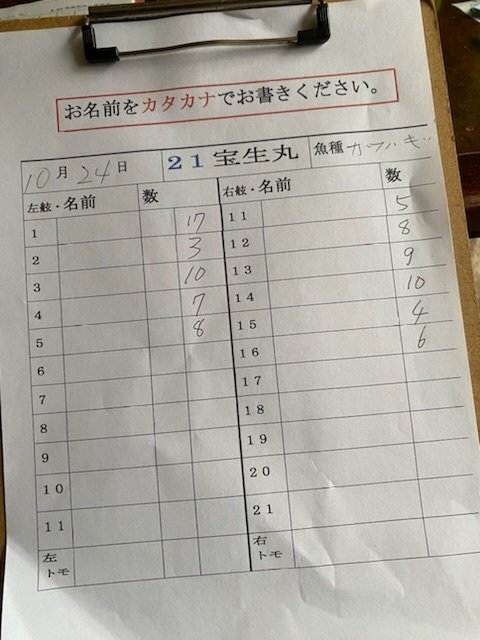 お名前をカタカナでお書きください。
10月24日 21宝生丸 魚種 カワハギ
左舷・名前 数 右舷・名前 数
1 17 11 5
2 3 12 8
3 10 13 9
4 7 14 10
5 8 15 4
6 16 6
7 17
8 18
9 19
10 20
11 21
左トモ 右トモ